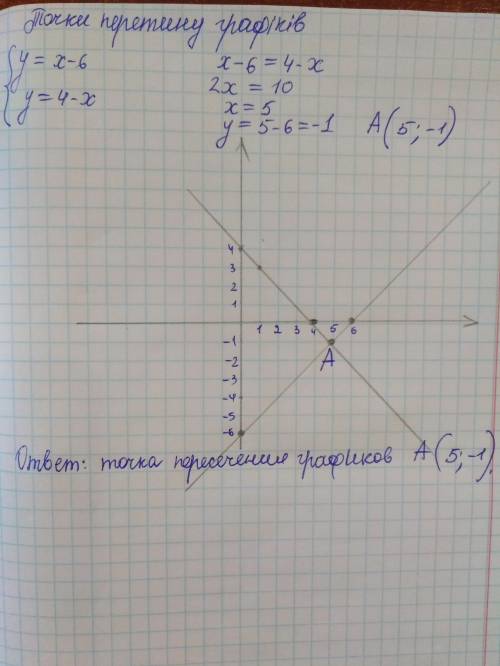 Точки перетину графіків
y = x-6
x-6 = 4-x
y = 4-x
2x = 10
x = 5
y = 5-6 = -1 A(5; -1)
4
3
2
1
1 2 3 4 5 6
-1
A
-2
-3
-4
-5
-6
Ответ: точка пересечения графиков A(5; -1).